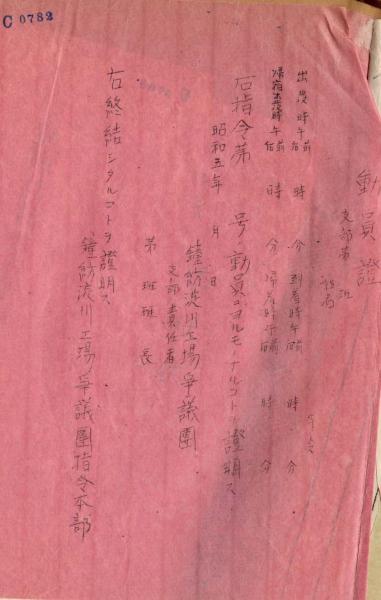 C 0782
動員證
支部第 班
出發時 午前 午后 時 分 到着時 午前 午后 時 分
歸宿出發時 午前 午后 時 分 歸着時 午前 午后 時 分
右指令第 号ノ動員ニヨルモノナルコトヲ證明ス
昭和五年 月 日
鐘紡淀川工場爭議團
支部責任者
第 班班長
右終結シタルコトヲ證明ス
鐘紡淀川工場爭議團指令本部